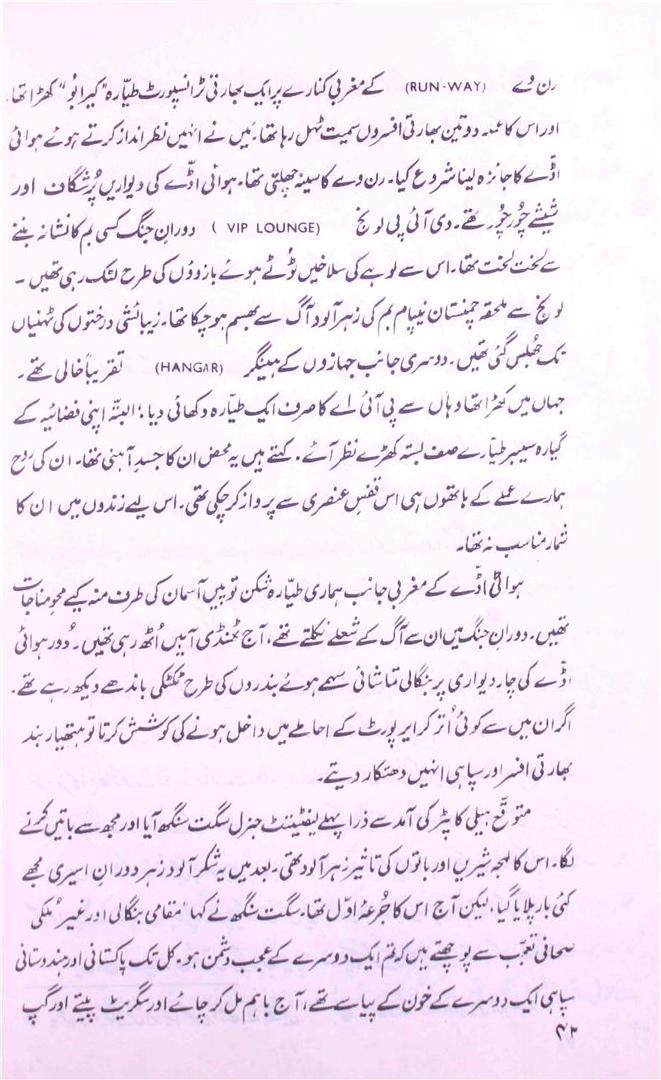 رن وے (RUN-WAY) کے مغربی کنارے پر ایک بھارتی ٹرانسپورٹ طیّارہ "کیرابُو" کھڑا تھا۔
اور اس کا عملہ دو تین بھارتی افسروں سمیت ٹہل رہا تھا۔ میں نے انہیں نظر انداز کرتے ہوئے ہوائی
اڈّے کا جائزہ لینا شروع کیا۔ رن وے کا سینہ چھلنی تھا۔ ہوائی اڈّے کی دیواریں پُرشگاف اور
شیشے چُور چُور تھے۔ وی آئی پی لونج (VIP LOUNGE) دورانِ جنگ کسی بم کا نشانہ بننے
سے لخت لخت تھا۔ اس سے لوہے کی سلاخیں ٹوٹے ہوئے بازوؤں کی طرح لٹک رہی تھیں۔
لونج سے ملحقہ چمنستان نیپام بم کی زہر آلود آگ سے بھسم ہو چکا تھا۔ زیبائشی درختوں کی ٹہنیاں
تک جھلس گئی تھیں۔ دوسری جانب جہازوں کے ہینگر (HANGAR) تقریباً خالی تھے۔
جہاں میں کھڑا تھا وہاں سے پی آئی اے کا صرف ایک طیّارہ دکھائی دیا؛ البتّہ اپنی فضائیہ کے
گیارہ سیبر طیارے صف بستہ کھڑے نظر آئے۔ کہتے ہیں یہ محض ان کا جسدِ آہنی تھا۔ ان کی رُوح
ہمارے عملے کے ہاتھوں ہی اس قفسِ عنصری سے پرواز کر چکی تھی۔ اس لیے زندوں میں ان کا
شمار مناسب نہ تھا۔
ہوائی اڈّے کے مغربی جانب ہماری طیّارہ شکن توپیں آسمان کی طرف منہ کیے محوِ مناجات
تھیں۔ دورانِ جنگ میں ان سے آگ کے شعلے نکلتے تھے، آج ٹھنڈی آہیں اُٹھ رہی تھیں۔ دُور ہوائی
اڈّے کی چار دیواری پر بنگالی تماشائی سہمے ہوئے بندروں کی طرح ٹکٹکی باندھے دیکھ رہے تھے۔
اگر ان میں سے کوئی اُتر کر ایرپورٹ کے احاطے میں داخل ہونے کی کوشش کرتا تو ہتھیار بند
بھارتی افسر اور سپاہی انہیں دھتکار دیتے۔
متوقّع ہیلی کاپٹر کی آمد سے ذرا پہلے لیفٹیننٹ جنرل سگت سنگھ آیا اور مجھ سے باتیں کرنے
لگا۔ اس کا لہجہ شیریں اور باتوں کی تاثیر زہر آلود تھی۔ بعد میں یہ شکر آلود زہر دورانِ اسیری مجھے
کئی بار پلایا گیا، لیکن آج اس کا جُرعۂ اوّل تھا۔ سگت سنگھ نے کہا "مقامی بنگالی اور غیر مُلکی
صحافی تعجّب سے پوچھتے ہیں کہ تم ایک دوسرے کے عجب دشمن ہو۔ کل تک پاکستانی اور ہندوستانی
سپاہی ایک دوسرے کے خون کے پیاسے تھے، آج باہم مل کر چائے اور سگریٹ پیتے اور گپ
۴۲